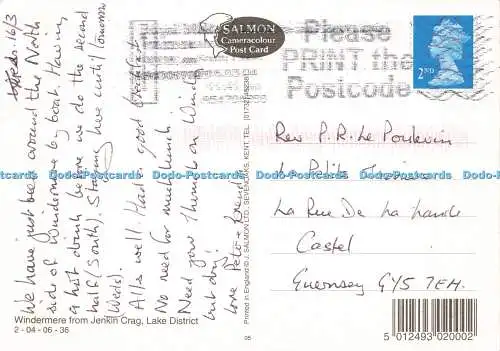 16/3
We have just been around the North
side of Windermere by boat. Having
a hot drink before we do the second
half (South). Staying here until tomorrow
(Weds).
All's well. Had a good breakfast
No need for much lunch.
Need your thermals on Wind
but dry!
Love Pete + Brenda
Windermere from Jenkin Crag, Lake District
2 - 04 - 06 - 36
SALMON
Cameracolour
Post Card
Printed in England © J. SALMON LTD., SEVENOAKS, KENT. TEL: (01732) 452381
Please
PRINT the
Postcode
2ND
Rev P. R. Le Poidevin
La Petite
La Rue De La Lande
Castel
Guernsey GY5 7EH.
5 012493 020002
Dodo-Postcards Dodo-Postcards Dodo-Postcards Dodo-Postcards Dodo-Postcards Dodo-Postcards